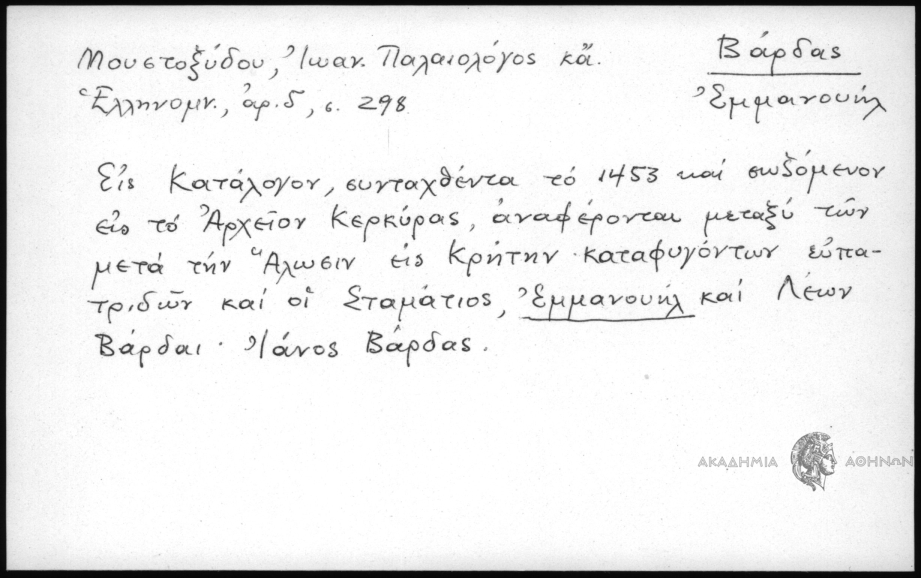 Μουστοξύδου, Ἰωαν. Παλαιολόγος κἄ.
Ἑλληνομν., ἀρ. δ, σ. 298
Βάρδας
Ἐμμανουήλ
Εἰς Κατάλογον, συνταχθέντα τό 1453 καί σωζόμενον
εἰς τό Ἀρχεῖον Κερκύρας, ἀναφέρονται μεταξύ τῶν
μετά τήν Ἅλωσιν εἰς Κρήτην καταφυγόντων εὐπα-
τριδῶν καί οἱ Σταμάτιος, Ἐμμανουήλ καί Λέων
Βάρδαι · Ἰάνος Βάρδας.
ΑΚΑΔΗΜΙΑ ΑΘΗΝΩΝ